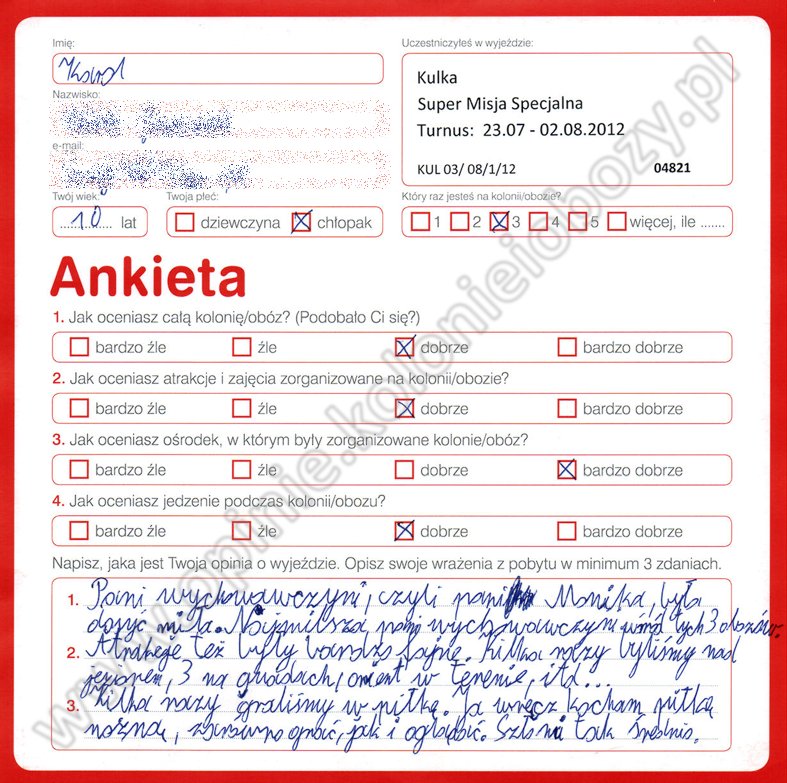 Imię:
Karol
Nazwisko:
e-mail:
Twój wiek:
10 lat
Twoja płeć:
dziewczyna chłopak
Uczestniczyłeś w wyjeździe:
Kulka
Super Misja Specjalna
Turnus: 23.07 - 02.08.2012
KUL 03/ 08/1/12 04821
Który raz jesteś na kolonii/obozie?
1 2 3 4 5 więcej, ile .......
Ankieta
1. Jak oceniasz całą kolonię/obóz? (Podobało Ci się?)
bardzo źle źle dobrze bardzo dobrze
2. Jak oceniasz atrakcje i zajęcia zorganizowane na kolonii/obozie?
bardzo źle źle dobrze bardzo dobrze
3. Jak oceniasz ośrodek, w którym były zorganizowane kolonie/obóz?
bardzo źle źle dobrze bardzo dobrze
4. Jak oceniasz jedzenie podczas kolonii/obozu?
bardzo źle źle dobrze bardzo dobrze
Napisz, jaka jest Twoja opinia o wyjeździe. Opisz swoje wrażenia z pobytu w minimum 3 zdaniach.
1. Pani wychowawczyni, czyli pani Monika, była
dosyć miła. Najmilsza pani wychowawczyni wśród tych 3 obozów.
2. Atrakcje też były bardzo fajne. Kilka razy byliśmy nad
jeziorem, 3 na w terenie, itd...
3. Kilka razy graliśmy w piłkę. Ja wręcz kocham piłkę
nożną, zarówno grać, jak i oglądać. Szło mi tak średnio.
www.opinie.kolonieiobozy.pl